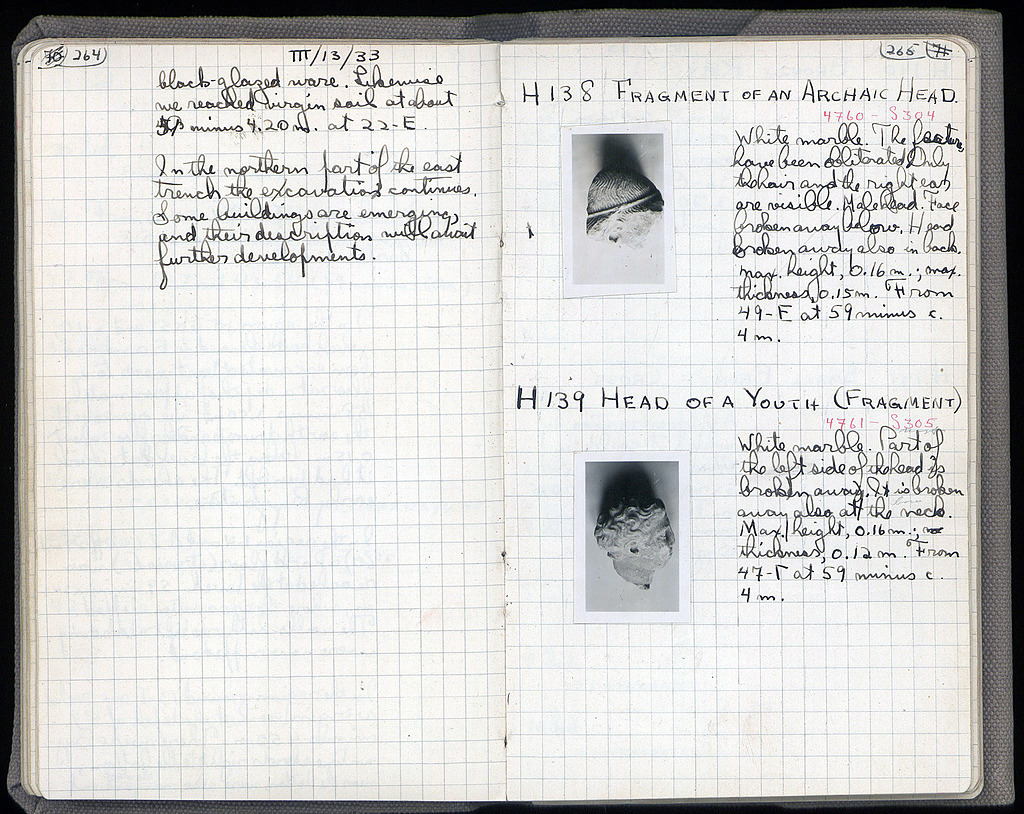 264
III/13/33
black-glazed ware. Likewise
we reached virgin soil at about
59 minus 4.20 m. at 22-E.
In the northern part of the east
trench the excavation continues.
Some buildings are emerging,
and their description will await
further developments.
265
H 138 FRAGMENT OF AN ARCHAIC HEAD.
4760 - S304
White marble. The features
have been obliterated. Only
the hair and the right ear
are visible. Male head. Face
broken away below. Head
broken away also in back.
Max. height, 0.16 m.; max.
thickness, 0.15 m. From
49-E at 59 minus c.
4 m.
H 139 HEAD OF A YOUTH (FRAGMENT)
4761 - S305
White marble. Part of
the left side of the head is
broken away. It is broken
away also at the neck.
Max. height, 0.16 m.;
thickness, 0.12 m. From
47-Γ at 59 minus c.
4 m.